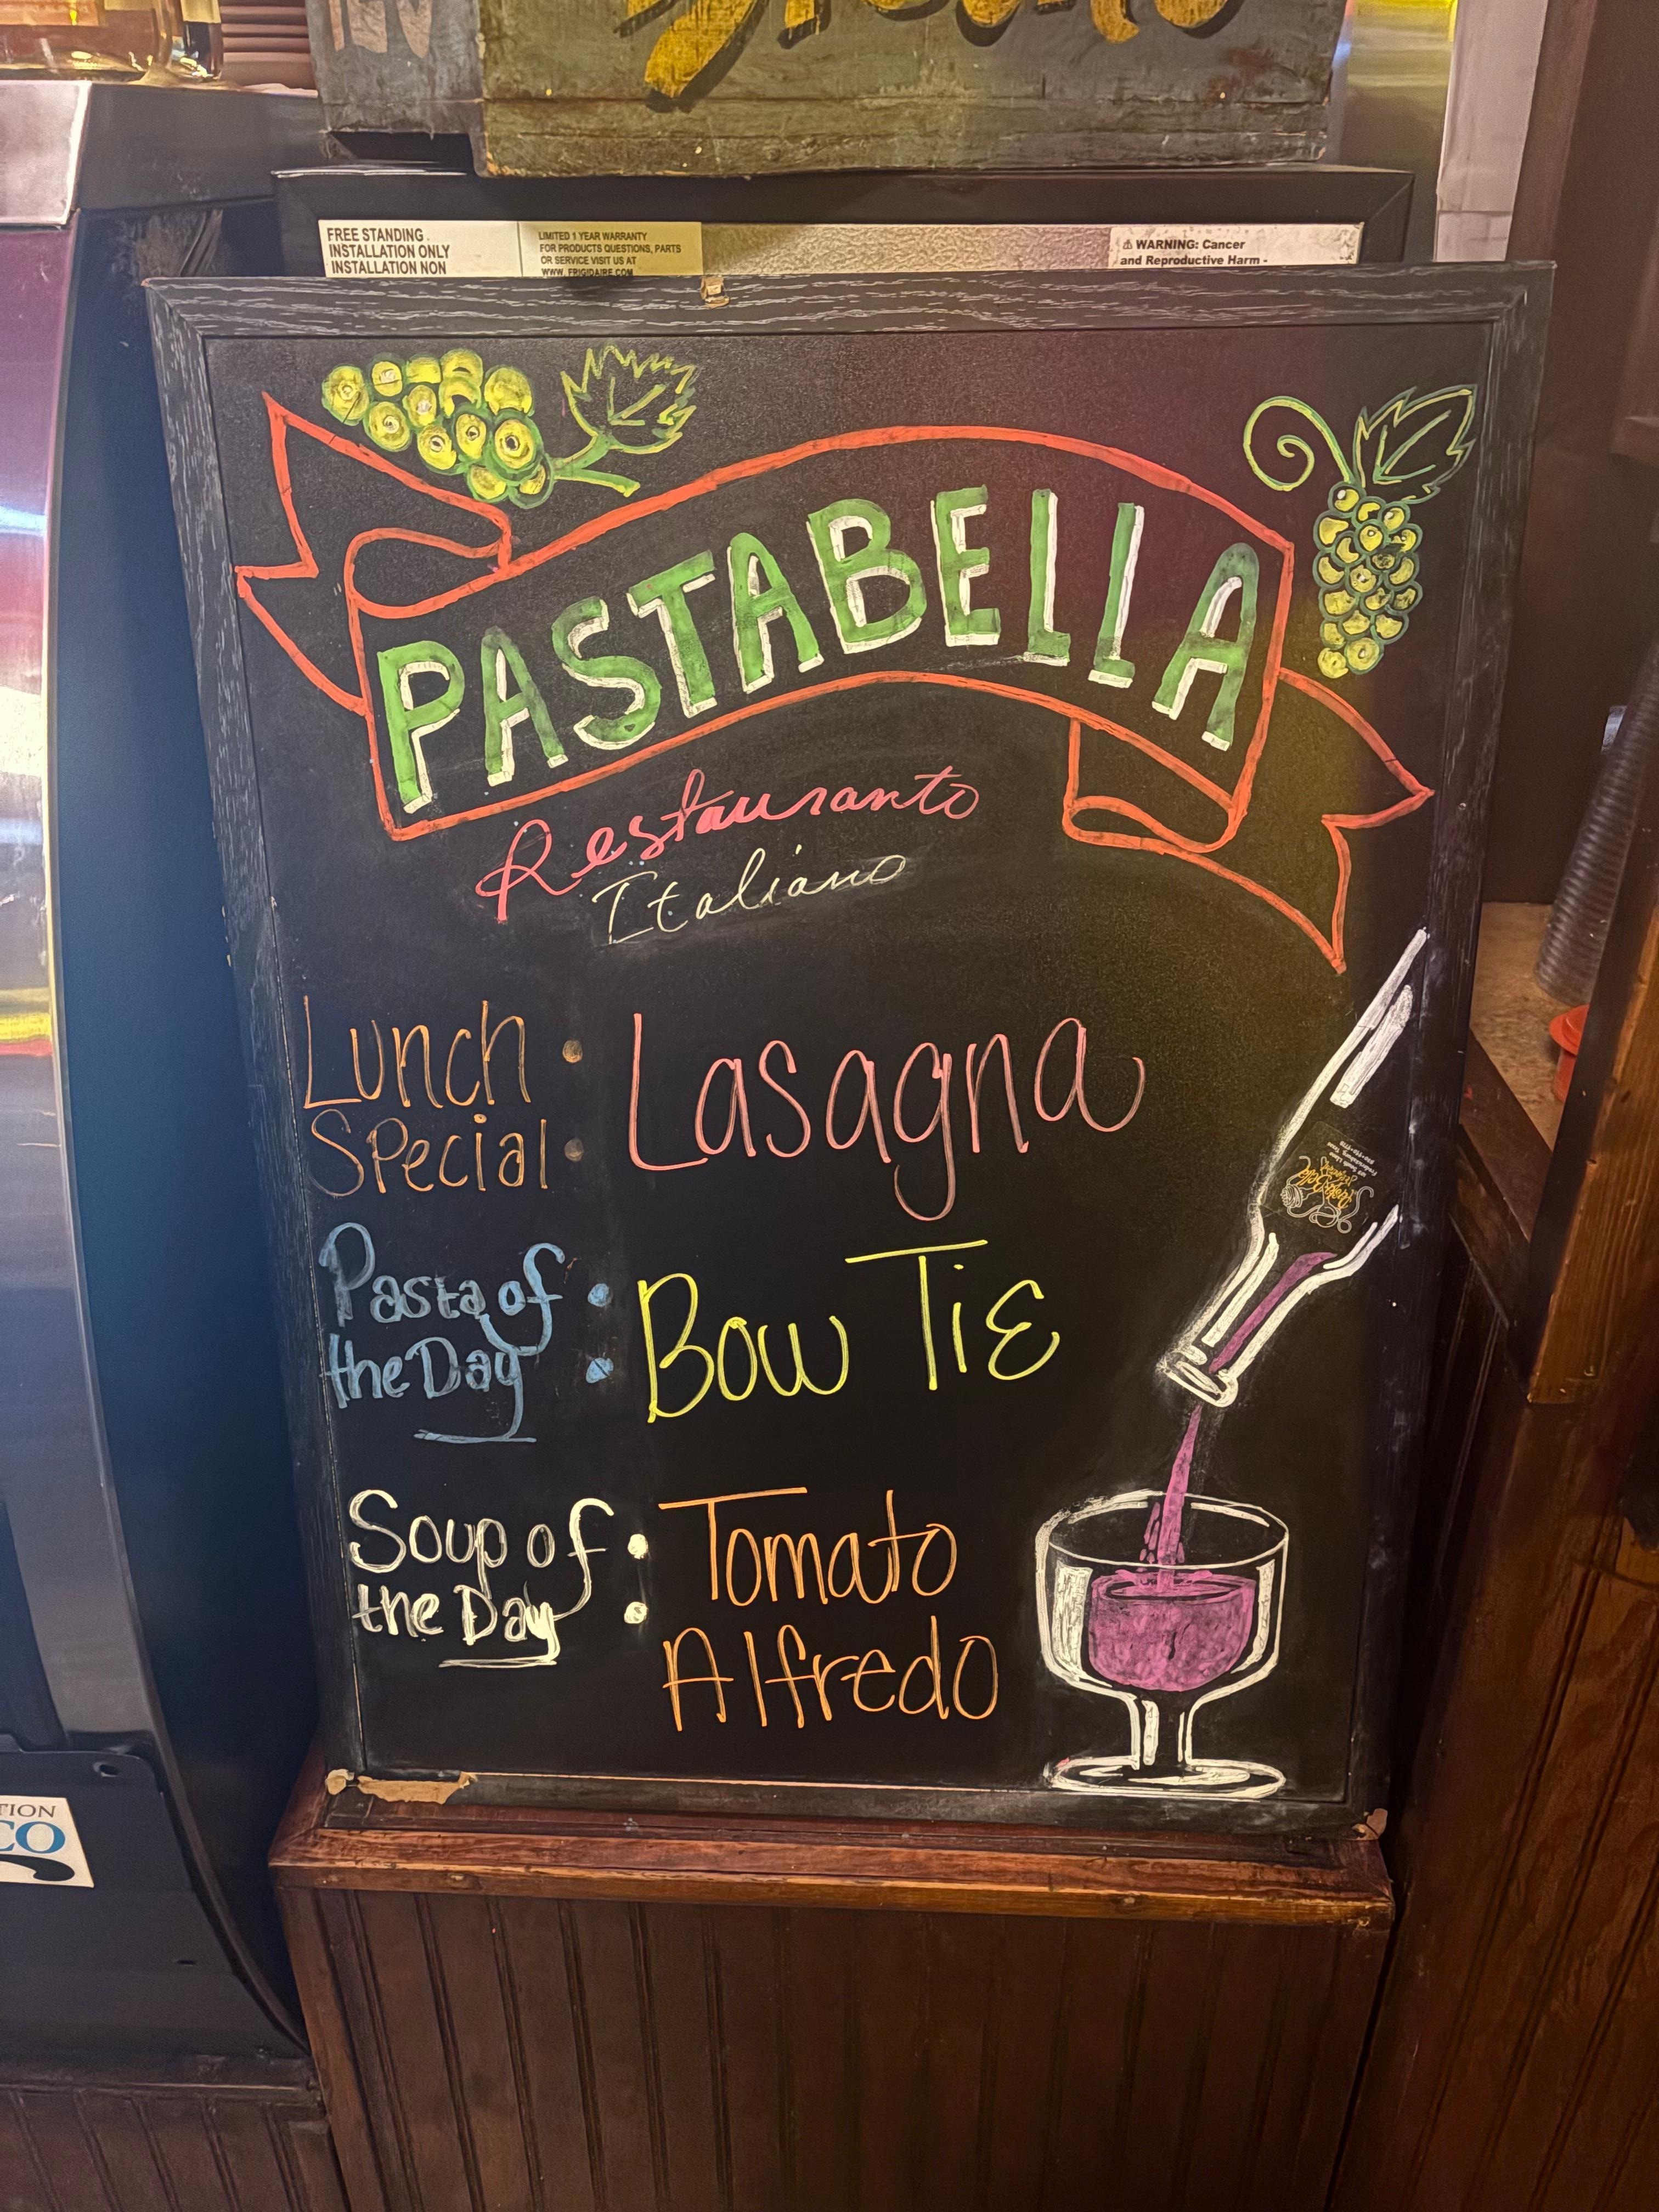 FREE STANDING
INSTALLATION ONLY
INSTALLATION NON
LIMITED 1 YEAR WARRANTY
FOR PRODUCTS QUESTIONS, PARTS
OR SERVICE VISIT US AT
WWW.FRIGIDAIRE.COM
⚠ WARNING: Cancer
and Reproductive Harm -
PASTABELLA
Restauranto
Italiano
Lunch
Special : Lasagna
Pasta of
the Day : Bow Tie
Soup of
the Day : Tomato
Alfredo
TION
CO